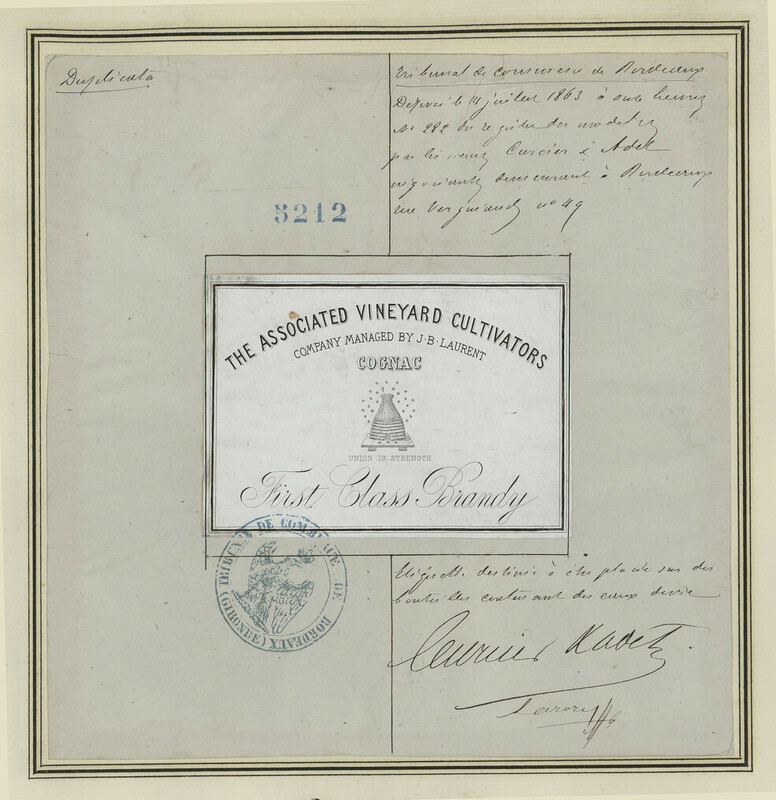 Duplicata
Tribunal de commerce de Bordeaux
Déposé le 14 juillet 1863 à onze heures
No 282 du registre des modèles
par les sieurs Cursier & Adet
négociants demeurant à Bordeaux
rue no 49
5212
THE ASSOCIATED VINEYARD CULTIVATORS
COMPANY MANAGED BY J.B. LAURENT
COGNAC
UNION IS STRENGTH
First Class Brandy
TRIBUNAL DE COMMERCE DE BORDEAUX
(GIRONDE)
Etiquette destinée à être placée sur des
bouteilles contenant des eaux de vie